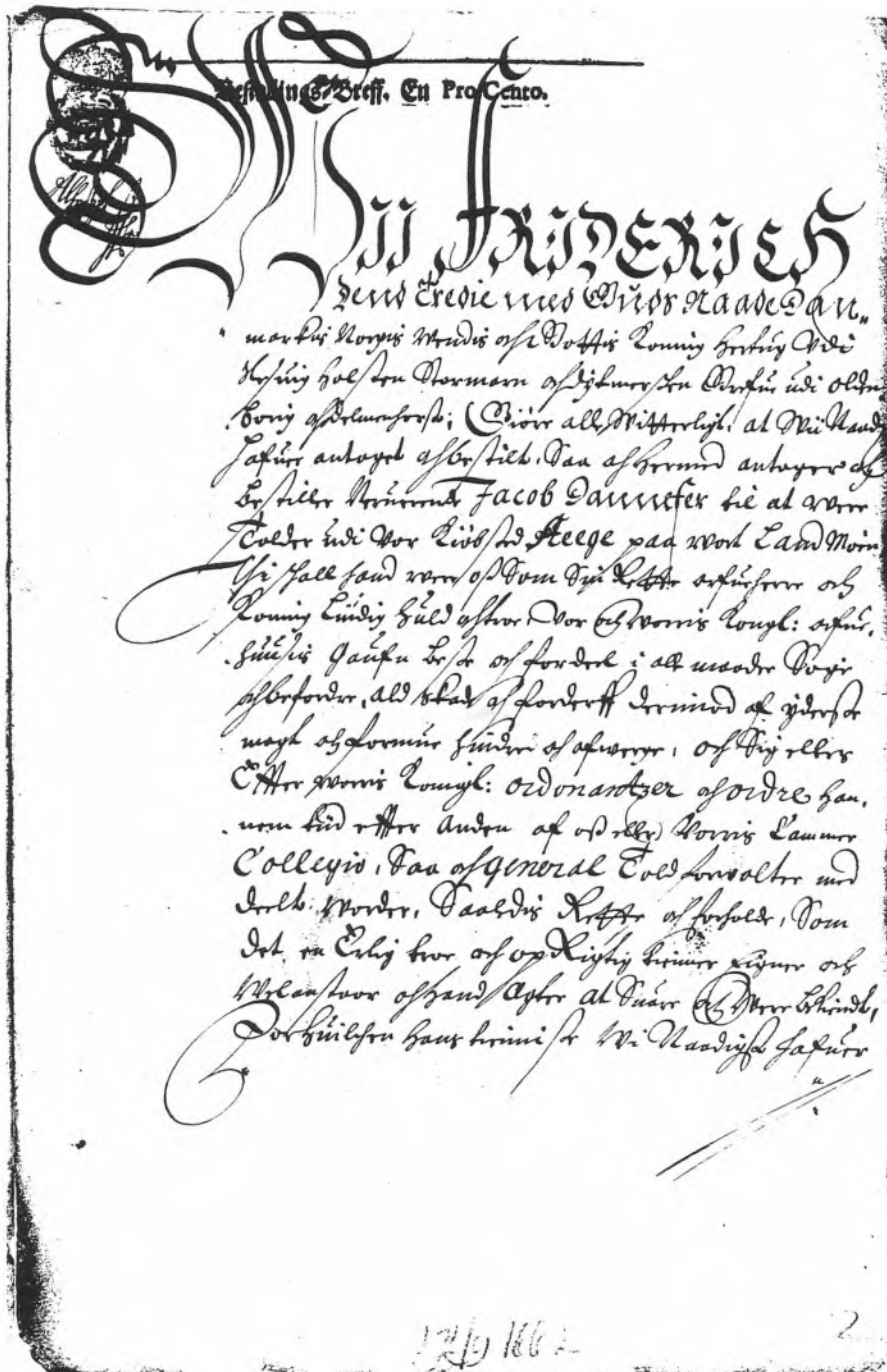 Bestillings-Breff. En Pro Cento.
Wii FRIDERICH
Dend Tredie med Guds Naade Dan„
markis Norgis Wendis och Gottis Koning Hertug Udi
Slesuig Holsten Stormarn och Dytmersken Grefue udi Olden
borig och Delmenhorst; Giøre alle Witterligt, at Wii Naad
hafuer antaget och bestilt, Saa och hermed antager och
bestiller Neruerende Jacob Dannefer til at were
Tolder udi Vor Kiøbsted Steege paa wort Land Møen
Thi skall hand were oß Som Sin Rette arfueherre och
Koning Liudig Huld och troe Vor och worris Kongl: arfue,
huusis Gaufn beste och fordeel i alt maader Søge
och befordre, ald skade och forderff derimod af yderste
magt och formue hindre och afwerge, och Sig ellers
Effter worris Konigl: ordonantzer och ordre han,
nem tiid effter anden af oß eller Vorris Cammer
Collegio, Saa och General Toldforvalter med
deelt worder, Saaledis Rette och forholde, Som
det en Erlig troe och opRigtig tienner Eigner och
Velanstaar och hand Agter at Suare och Were bekiendt,
For huilchen hans tienniste Wi Naadigst hafuer
12/9 166
2